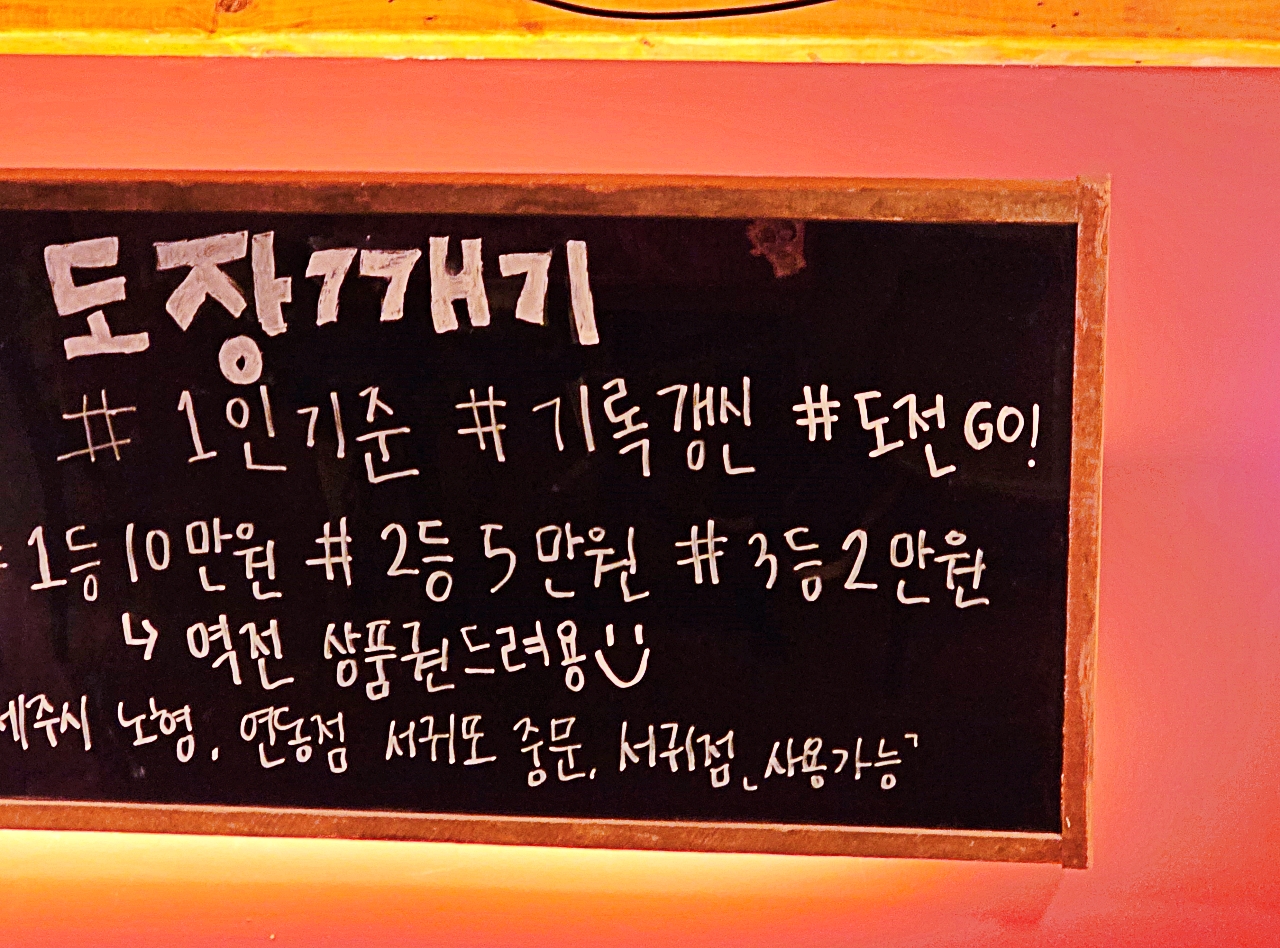 도장깨기
# 1인기준 # 기록갱신 # 도전 GO!
# 1등 10만원 # 2등 5만원 # 3등 2만원
↳ 역전 상품권드려용
제주시 노형, 연동점 서귀포 중문, 서귀점 ⌞사용가능⌝